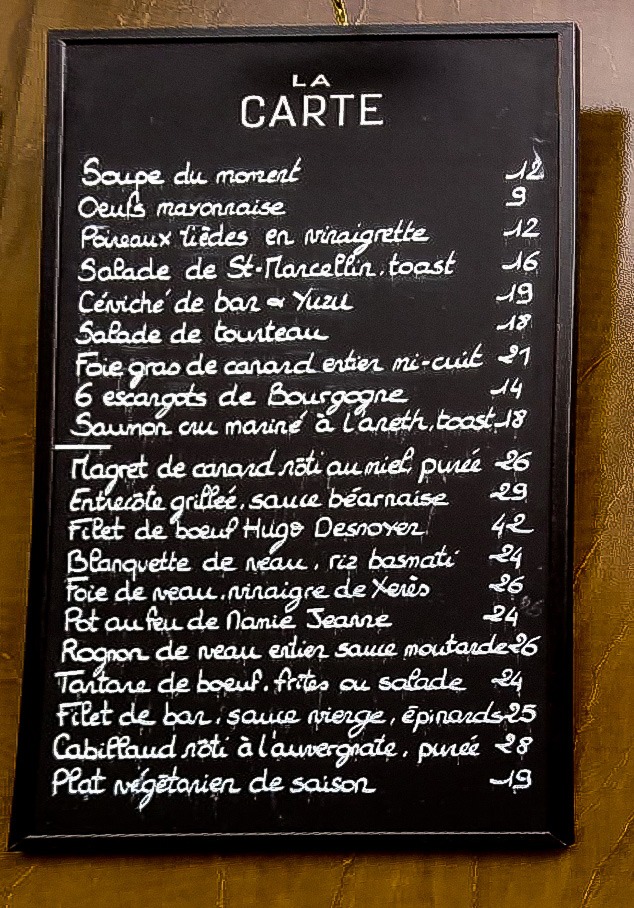 LA
CARTE
Soupe du moment 12
Oeufs mayonnaise 9
Poireaux tièdes en vinaigrette 12
Salade de St-Marcellin, toast 16
Céviché de bar & Yuzu 19
Salade de tourteau 18
Foie gras de canard entier mi-cuit 21
6 escargots de Bourgogne 14
Saumon cru mariné à l'aneth, toast 18
Magret de canard rôti au miel, purée 26
Entrecôte grillée, sauce béarnaise 29
Filet de boeuf Hugo Desnoyer 42
Blanquette de veau, riz basmati 24
Foie de veau, vinaigre de Xerès 26
Pot au feu de Mamie Jeanne 24
Rognon de veau entier sauce moutarde 26
Tartare de boeuf, frites ou salade 24
Filet de bar, sauce vierge, épinards 25
Cabillaud rôti à l'auvergnate, purée 28
Plat végétarien de saison 19